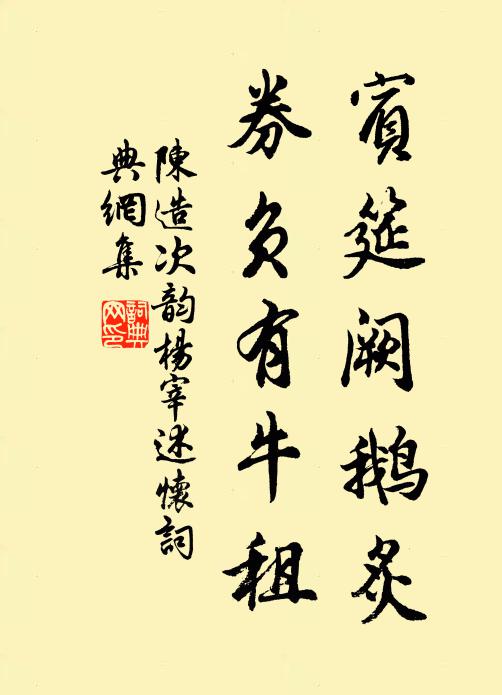 賓筵闕鵝炙
券負有牛租
陳造次韵楊宰述懷詞
典網集
詞典網印